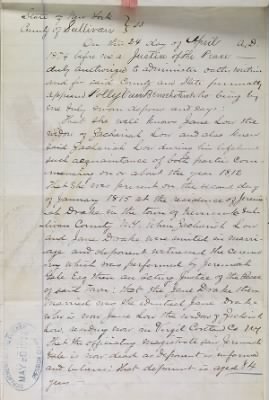 State of New York } SS
County of Sullivan }
On this 24 day of April A.D.
before me a Justice of the Peace
duly authorized to administer oaths within
and for said County and State personally
appeared Polly who being by
me duly sworn deposes and says:
That she well knew Jane Low the
widow of Zachariah Low and also knew
said Zachariah Low during his lifetime
such acquaintance of both parties Com-
mencing on or about the year 1812
That she was present on the second day
of January 1815 at the residence of
Drake in the town of
County N.Y. when Zachariah Low
and Jane Drake were united in marri-
age and deponent witnessed the Ceremo-
ny which was performed by
Esq then an acting Justice of the Peace
of said Town; that the Jane Drake then
married was the identical Jane Drake
who is now Jane Low the widow of Zachariah
Low, residing now in Virgil Cortland Co. N.Y.
That the officiating magistrate
is now dead as deponent is informed
and believes: that deponent is aged 84
years —
MAY 20